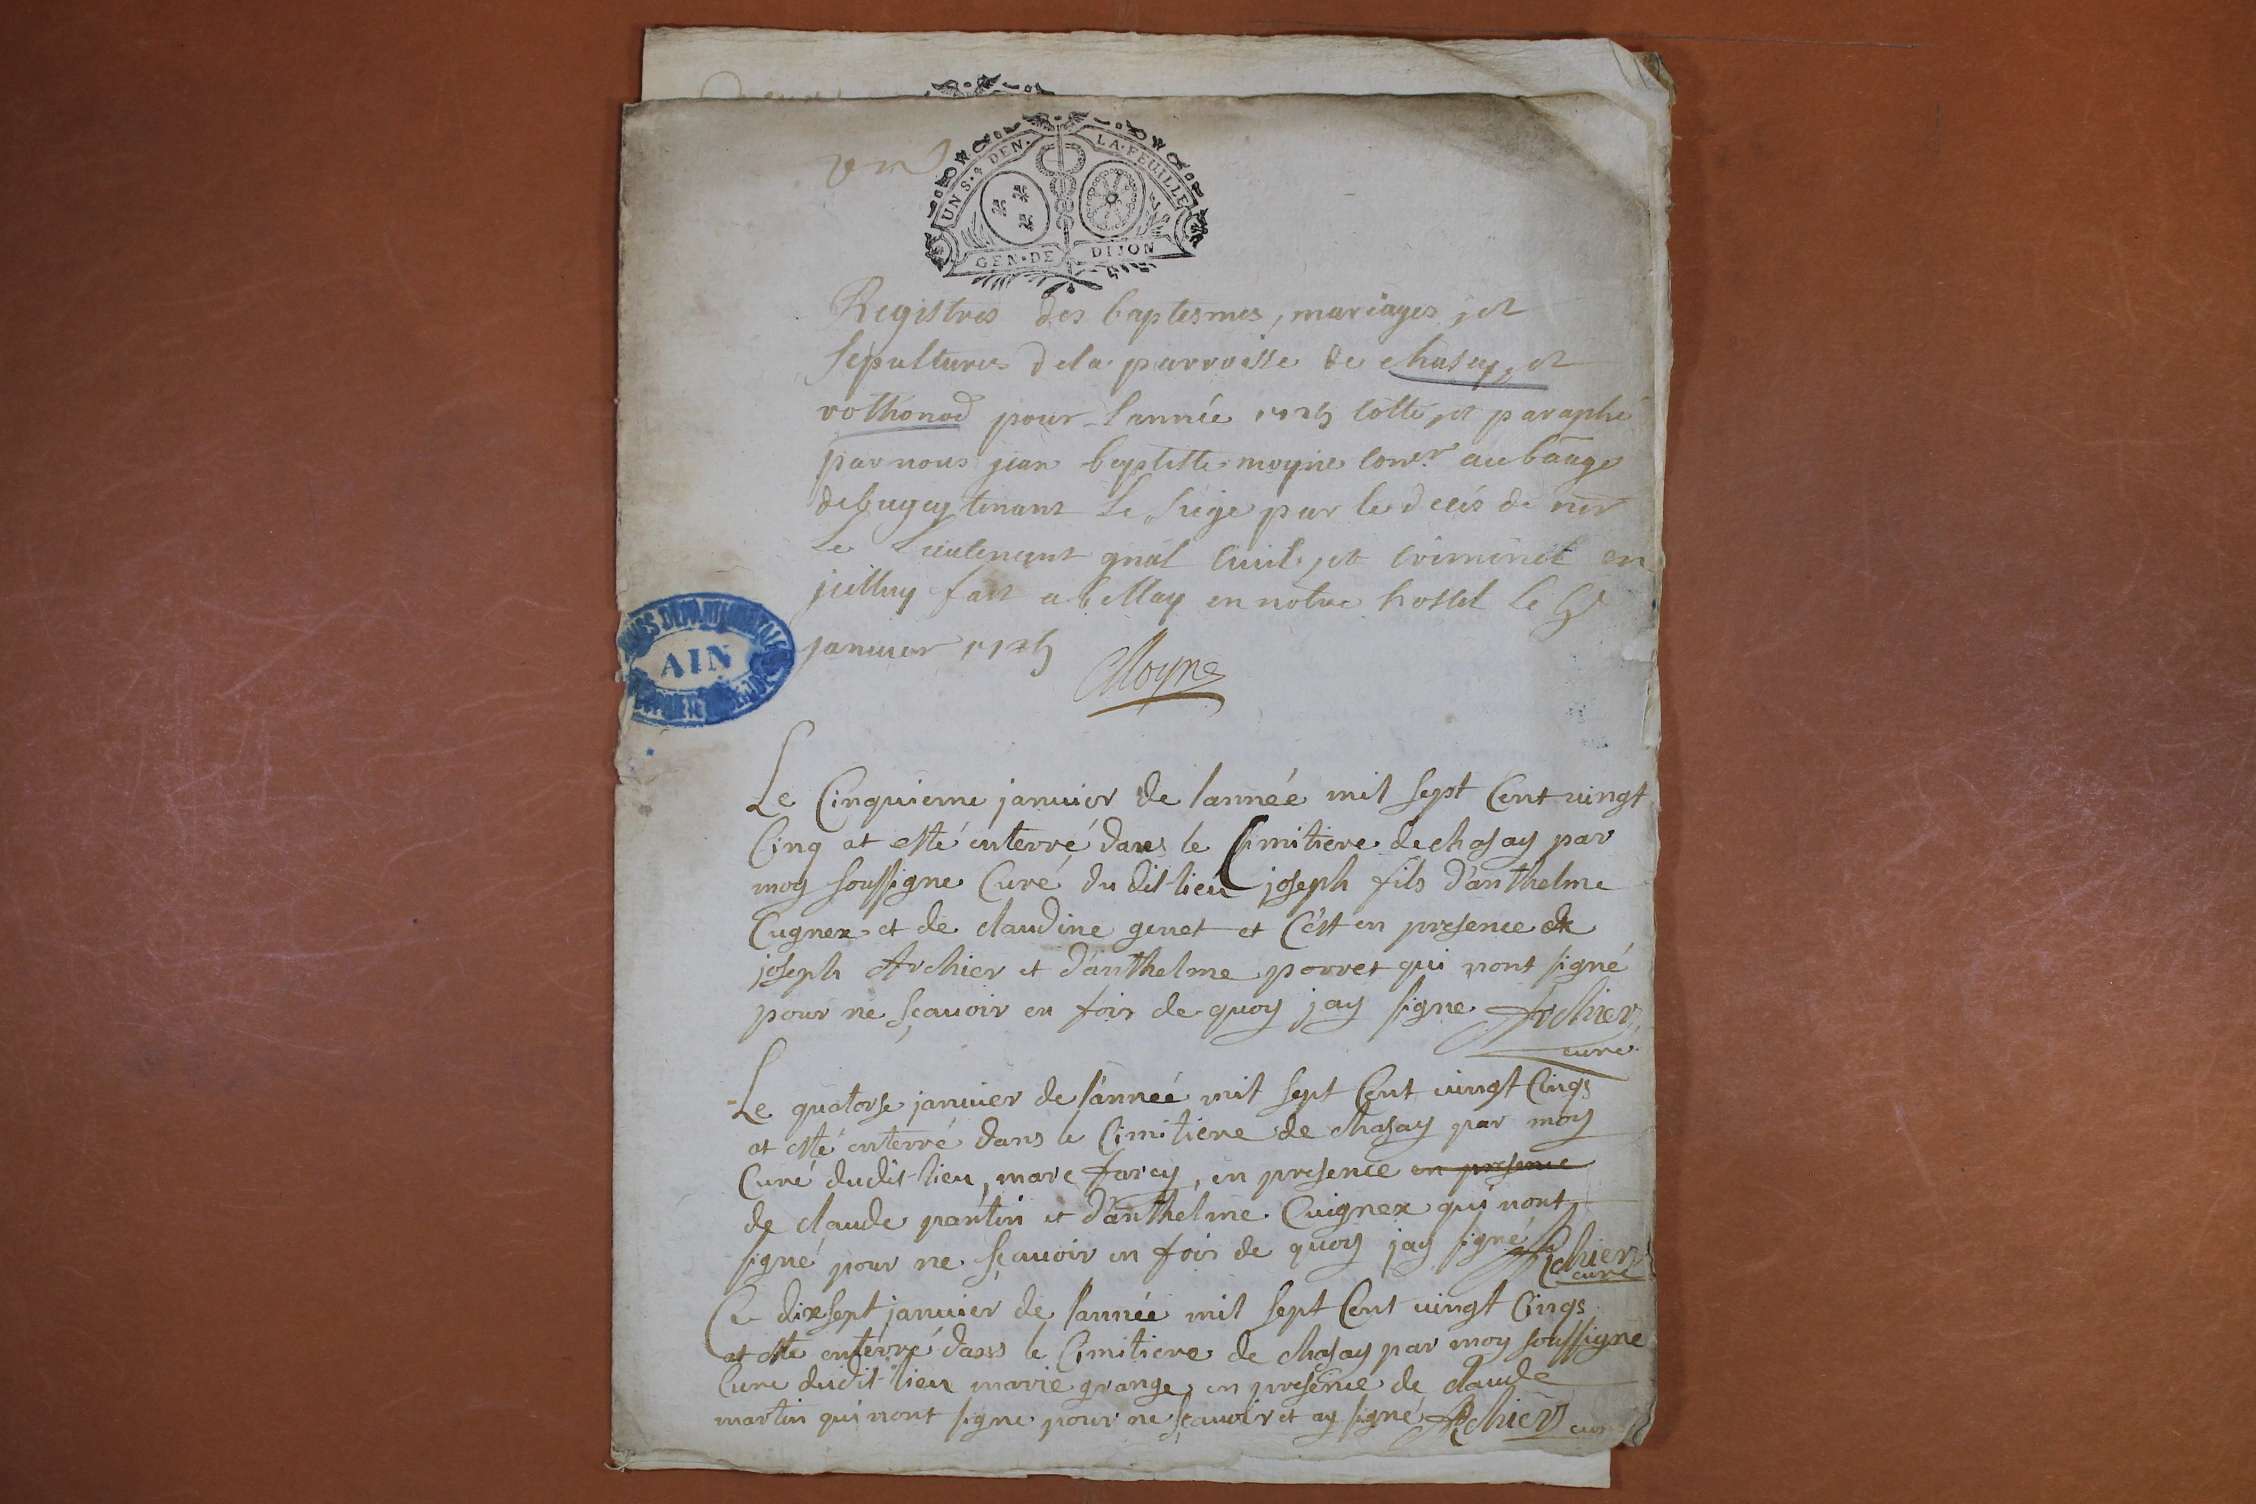 un
UN S. 4 DEN. LA FEUILLE
GEN. DE DIJON
Registres des baptesmes, mariages, et
sepultures de la parroisse de chasey, et
vothonod pour l'année 1725 cotté, et paraphé
par nous jean baptiste moyne coner au bāage
de bugey tenant le siege par le deces de mr
le lieutenant gnāl civil, et criminel en
fait a bellay en notre hostel le
janvier 1725
Moyne
AIN
Le Cinquieme janvier de lanneé mil sept Cent vingt
Cinq at esté enterré dans le Cimitiere de chasay par
moy soussigne Curé du dit lieu joseph fils d'anthelme
Cugnex et de claudine genet et C'est en presence de
joseph Archier et d'anthelme porret qui nont signé
pour ne sçavoir en fois de quoy jay signe Archier
curé
Le quatorse janvier de l'anneé mil sept Cent vingt Cinqs
at esté enterré dans le Cimitiere de chasay par moy
Curé dudit lieu, marc farcy, en presence en presence
de claude pantin et d'anthelme Cuignex qui nont
signé pour ne sçavoir en fois de quoy jay signé Archier
curé
Ce dixsept janvier de lanneé mil sept Cent vingt Cinqs
at esté enterré dans le Cimitiere de chasay par moy soussigne
Cure dudit lieu marie grange, en presence de claude
martin qui nont signe pour ne sçavoir et ay signé Archier cure